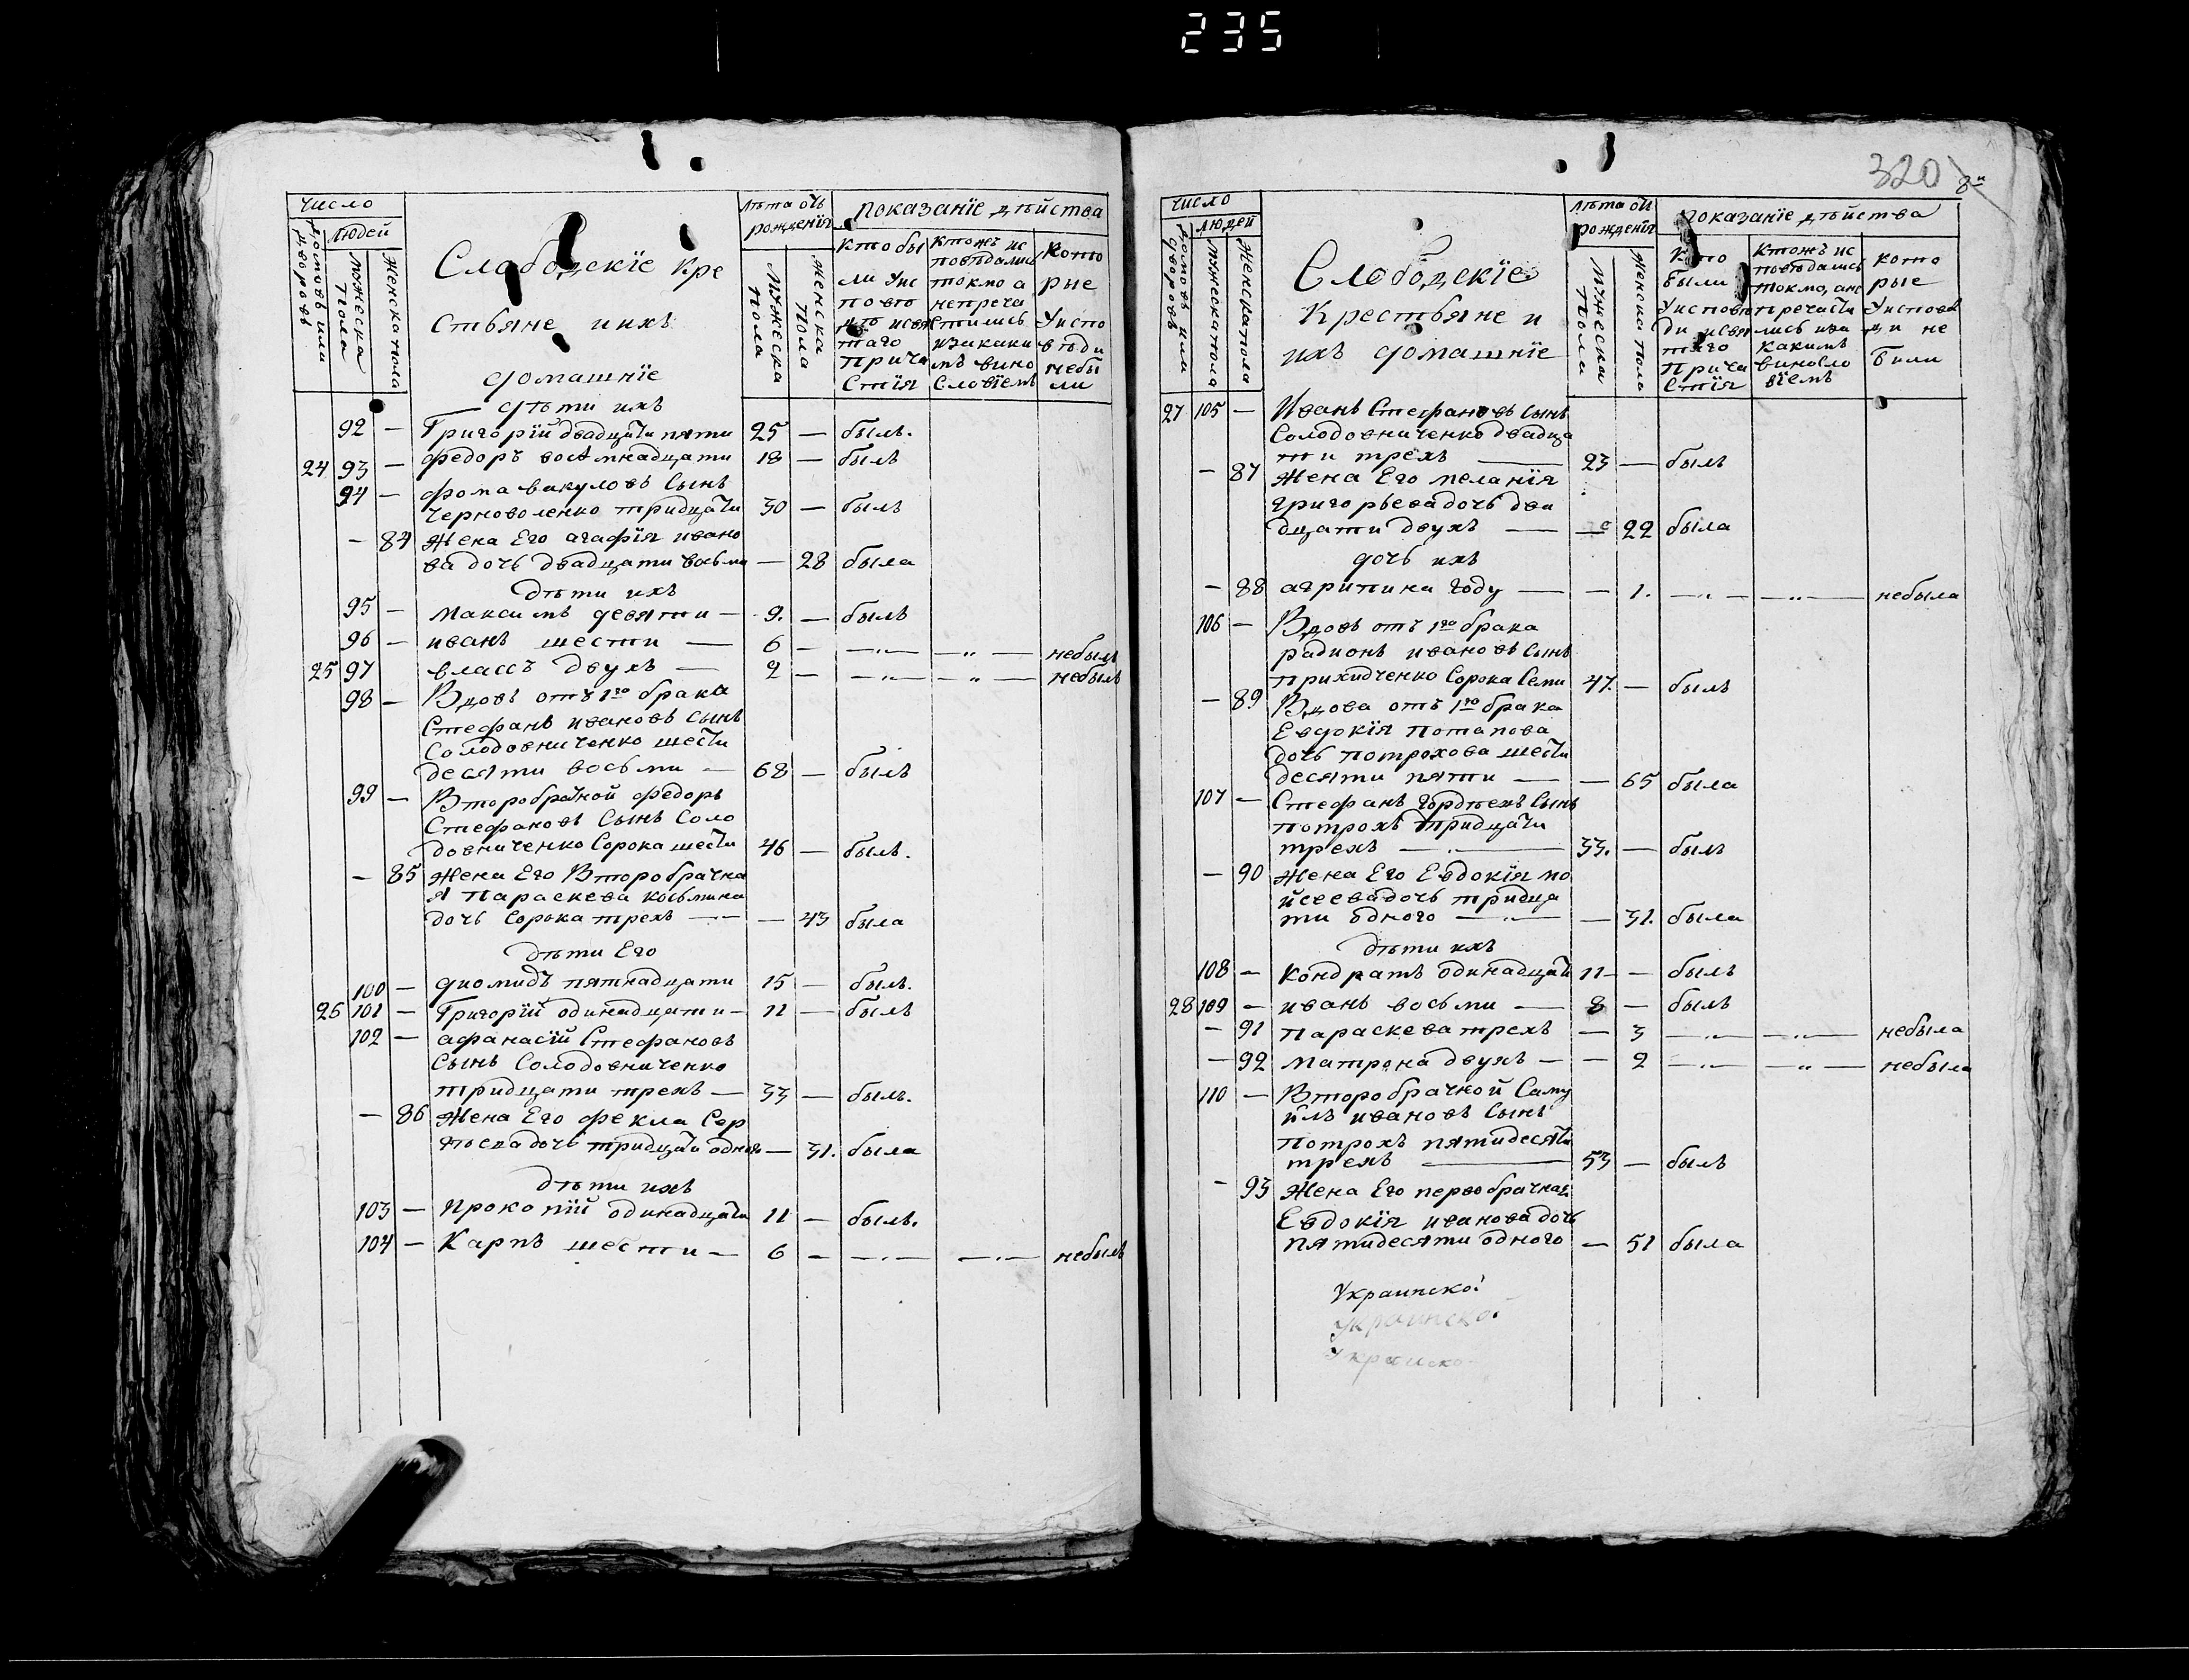 235
число
людей
домовъ или дворовъ
мужеска пола
женска пола
Слободскїе кре
стьяне и ихъ
домашнїе
лѣта отъ рожденїя
мужеска пола
женска пола
показанїе дѣйства
кто бы
ли у ис
пове
ди и свя
таго
прича
стїя
ктожъ ис
поведались
токмо а
непреча
стились
и за каки
мъ вино
словїемъ
кото
рые
у испо
вѣди
небы
ли
дѣти ихъ
92 — Григорїй двадцати пяти 25 — былъ.
24 93 — федоръ восемнадцати 18 — былъ
94 — фома вакуловъ сынъ
черноволенко тридцати 30 — былъ
— 84 жена Его агафїя ивано
ва дочь двадцати восьми — 28 была
дѣти ихъ
95 — максимъ девяти — 9. — былъ
96 — иванъ шести — 6 — —„— —„— небылъ
25 97 власъ двухъ — 2 — —„— —„— небылъ
98 — Вдовъ отъ 1го брака
Стефанъ ивановъ сынъ
Солодовниченко шести
десяти восьми — 68 — былъ
99 — Второбрачной федоръ
Стефановъ Сынъ Соло
довниченко Сорока шести 46 — былъ.
— 85 жена Его Второбрачна
я параскева косьмина
дочь сорока трехъ — — 43 была
дѣти Его
100 — диомидъ пятнадцати 15 — былъ.
26 101 — Григорїй одинадцати — 11 — былъ
102 — афанасїй Стефановъ
сынъ Солодовниченко
тридцати трехъ — 33 — былъ.
— 86 жена Его фекла Сер
гѣева дочь тридцати одного — 31. была
дѣти ихъ
103 — прокопїй одинадцати 11 — былъ.
104 — Карпъ шести — 6 — —„— —„— небылъ
320
число
людей
домовъ или дворовъ
мужеска пола
женска пола
Слободскїе
крестьяне и
ихъ домашнїе
лѣта отъ рожденїя
мужеска пола
женска пола
показанїе дѣйства
кто
были
у испове
ди и свя
таго
прича
стїя
ктожъ ис
поведались
токмо, а не
пречасти
лись и за
какимъ
виносло
вїемъ
кото
рые
у испове
ди не
были
27 105 — Иванъ Стефановъ сынъ
Солодовниченко двадца
ти трехъ — 23 — былъ
— 87 жена Его меланїя
григорьева дочь два
дцати двухъ — — 22 была
дочь ихъ
— 88 агрипина году — — 1. —„— —„— небыла
106 — Вдовъ отъ 1го брака
радионъ ивановъ сынъ
прихидченко сорока семи 47. — былъ
— 89 Вдова отъ 1го брака
Евдокїя потапова
дочь потрохова шести
десяти пяти — — 65 была
107 — Стефанъ гордѣевъ сынъ
потрохъ тридцати
трехъ — 33. — былъ
— 90 жена Его Евдокїя мо
йсеева дочь тридца
ти одного — — 31. была
дѣти ихъ
108 — кондратъ одинадцати 11 — былъ
28 109 — иванъ восьми — 8 — былъ
— 91 параскева трехъ — 3 —„— —„— небыла
— 92 матрона двухъ — — 2 —„— —„— небыла
110 — Второбрачной Саму
илъ ивановъ сынъ
потрохъ пятидесяти
трехъ — 53 — былъ
— 93 жена Его первобрачная
Евдокїя иванова дочь
пятидесяти одного — 51 была
Украинско
украинско